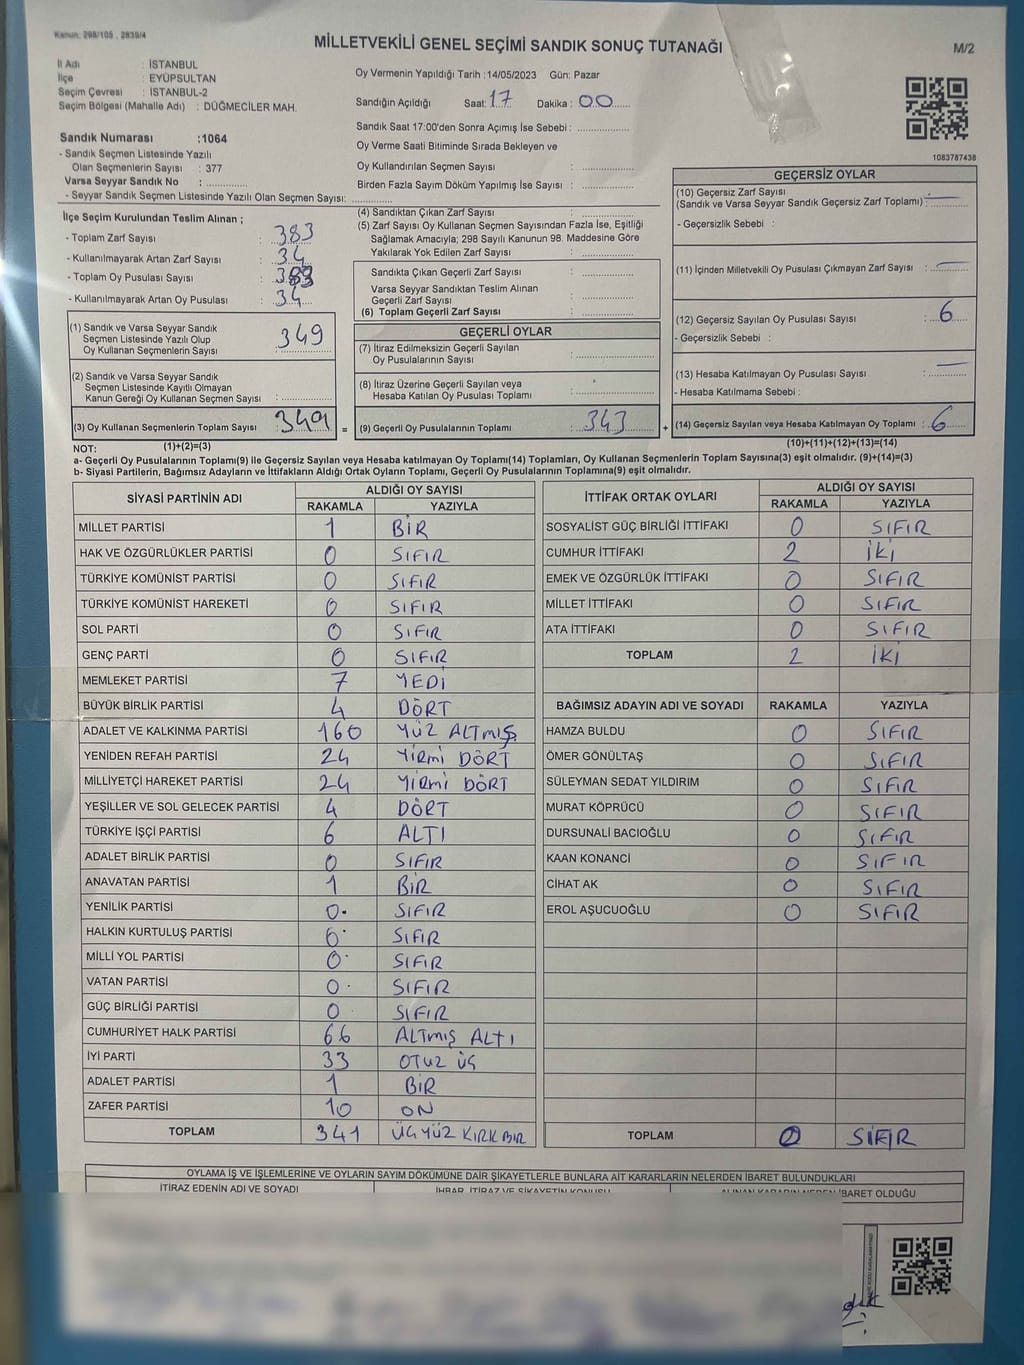 Kanun: 298/105 , 2839/4
MİLLETVEKİLİ GENEL SEÇİMİ SANDIK SONUÇ TUTANAĞI
M/2
İl Adı : İSTANBUL
İlçe : EYÜPSULTAN
Seçim Çevresi : İSTANBUL-2
Seçim Bölgesi (Mahalle Adı) : DÜĞMECİLER MAH.
Oy Vermenin Yapıldığı Tarih : 14/05/2023 Gün: Pazar
Sandığın Açıldığı Saat: 17 Dakika : 00
Sandık Saat 17:00'den Sonra Açılmış İse Sebebi :
Oy Verme Saati Bitiminde Sırada Bekleyen ve
Oy Kullandırılan Seçmen Sayısı :
Birden Fazla Sayım Döküm Yapılmış İse Sayısı :
1083787438
Sandık Numarası :1064
- Sandık Seçmen Listesinde Yazılı
Olan Seçmenlerin Sayısı : 377
Varsa Seyyar Sandık No :
- Seyyar Sandık Seçmen Listesinde Yazılı Olan Seçmen Sayısı:
İlçe Seçim Kurulundan Teslim Alınan ;
- Toplam Zarf Sayısı : 383
- Kullanılmayarak Artan Zarf Sayısı : 34
- Toplam Oy Pusulası Sayısı : 383
- Kullanılmayarak Artan Oy Pusulası : 34
(1) Sandık ve Varsa Seyyar Sandık
Seçmen Listesinde Yazılı Olup
Oy Kullanan Seçmenlerin Sayısı : 349
(2) Sandık ve Varsa Seyyar Sandık
Seçmen Listesinde Kayıtlı Olmayan
Kanun Gereği Oy Kullanan Seçmen Sayısı :
(3) Oy Kullanan Seçmenlerin Toplam Sayısı : 349 =
(4) Sandıktan Çıkan Zarf Sayısı :
(5) Zarf Sayısı Oy Kullanan Seçmen Sayısından Fazla İse, Eşitliği
Sağlamak Amacıyla; 298 Sayılı Kanunun 98. Maddesine Göre
Yakılarak Yok Edilen Zarf Sayısı :
Sandıkta Çıkan Geçerli Zarf Sayısı :
Varsa Seyyar Sandıktan Teslim Alınan
Geçerli Zarf Sayısı :
(6) Toplam Geçerli Zarf Sayısı :
GEÇERLİ OYLAR
(7) İtiraz Edilmeksizin Geçerli Sayılan
Oy Pusulalarının Sayısı :
(8) İtiraz Üzerine Geçerli Sayılan veya
Hesaba Katılan Oy Pusulası Toplamı :
(9) Geçerli Oy Pusulalarının Toplamı : 343 +
GEÇERSİZ OYLAR
(10) Geçersiz Zarf Sayısı
(Sandık ve Varsa Seyyar Sandık Geçersiz Zarf Toplamı) : —
- Geçersizlik Sebebi :
(11) İçinden Milletvekili Oy Pusulası Çıkmayan Zarf Sayısı : —
(12) Geçersiz Sayılan Oy Pusulası Sayısı : 6
- Geçersizlik Sebebi :
(13) Hesaba Katılmayan Oy Pusulası Sayısı : —
- Hesaba Katılmama Sebebi :
(14) Geçersiz Sayılan veya Hesaba Katılmayan Oy Toplamı : 6
NOT: (1)+(2)=(3) (10)+(11)+(12)+(13)=(14)
a- Geçerli Oy Pusulalarının Toplamı(9) ile Geçersiz Sayılan veya Hesaba katılmayan Oy Toplamı(14) Toplamları, Oy Kullanan Seçmenlerin Toplam Sayısına(3) eşit olmalıdır. (9)+(14)=(3)
b- Siyasi Partilerin, Bağımsız Adayların ve İttifakların Aldığı Ortak Oyların Toplamı, Geçerli Oy Pusulalarının Toplamına(9) eşit olmalıdır.
SİYASİ PARTİNİN ADI ALDIĞI OY SAYISI
RAKAMLA YAZIYLA
MİLLET PARTİSİ 1 BİR
HAK VE ÖZGÜRLÜKLER PARTİSİ 0 SIFIR
TÜRKİYE KOMÜNİST PARTİSİ 0 SIFIR
TÜRKİYE KOMÜNİST HAREKETİ 0 SIFIR
SOL PARTİ 0 SIFIR
GENÇ PARTİ 0 SIFIR
MEMLEKET PARTİSİ 7 YEDİ
BÜYÜK BİRLİK PARTİSİ 4 DÖRT
ADALET VE KALKINMA PARTİSİ 160 YÜZ ALTMIŞ
YENİDEN REFAH PARTİSİ 24 YİRMİ DÖRT
MİLLİYETÇİ HAREKET PARTİSİ 24 YİRMİ DÖRT
YEŞİLLER VE SOL GELECEK PARTİSİ 4 DÖRT
TÜRKİYE İŞÇİ PARTİSİ 6 ALTI
ADALET BİRLİK PARTİSİ 0 SIFIR
ANAVATAN PARTİSİ 1 BİR
YENİLİK PARTİSİ 0 SIFIR
HALKIN KURTULUŞ PARTİSİ 0 SIFIR
MİLLİ YOL PARTİSİ 0 SIFIR
VATAN PARTİSİ 0 SIFIR
GÜÇ BİRLİĞİ PARTİSİ 0 SIFIR
CUMHURİYET HALK PARTİSİ 66 ALTMIŞ ALTI
İYİ PARTİ 33 OTUZ ÜÇ
ADALET PARTİSİ 1 BİR
ZAFER PARTİSİ 10 ON
TOPLAM 341 ÜÇYÜZ KIRK BİR
İTTİFAK ORTAK OYLARI ALDIĞI OY SAYISI
RAKAMLA YAZIYLA
SOSYALİST GÜÇ BİRLİĞİ İTTİFAKI 0 SIFIR
CUMHUR İTTİFAKI 2 İKİ
EMEK VE ÖZGÜRLÜK İTTİFAKI 0 SIFIR
MİLLET İTTİFAKI 0 SIFIR
ATA İTTİFAKI 0 SIFIR
TOPLAM 2 İKİ
BAĞIMSIZ ADAYIN ADI VE SOYADI RAKAMLA YAZIYLA
HAMZA BULDU 0 SIFIR
ÖMER GÖNÜLTAŞ 0 SIFIR
SÜLEYMAN SEDAT YILDIRIM 0 SIFIR
MURAT KÖPRÜCÜ 0 SIFIR
DURSUNALİ BACIOĞLU 0 SIFIR
KAAN KONANCİ 0 SIFIR
CİHAT AK 0 SIFIR
EROL AŞUCUOĞLU 0 SIFIR
TOPLAM 0 SIFIR
OYLAMA İŞ VE İŞLEMLERİNE VE OYLARIN SAYIM DÖKÜMÜNE DAİR ŞİKAYETLERLE BUNLARA AİT KARARLARIN NELERDEN İBARET BULUNDUKLARI
İTİRAZ EDENİN ADI VE SOYADI İHBAR, İTİRAZ VE ŞİKAYETİN KONUSU ALINAN KARARIN NEDEN İBARET OLDUĞU